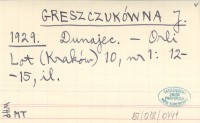 GRESZCZUKÓWNA J.
1929. Dunajec. – Orli
Lot (Kraków) 10, nr 1: 12-
-15, il.
MT